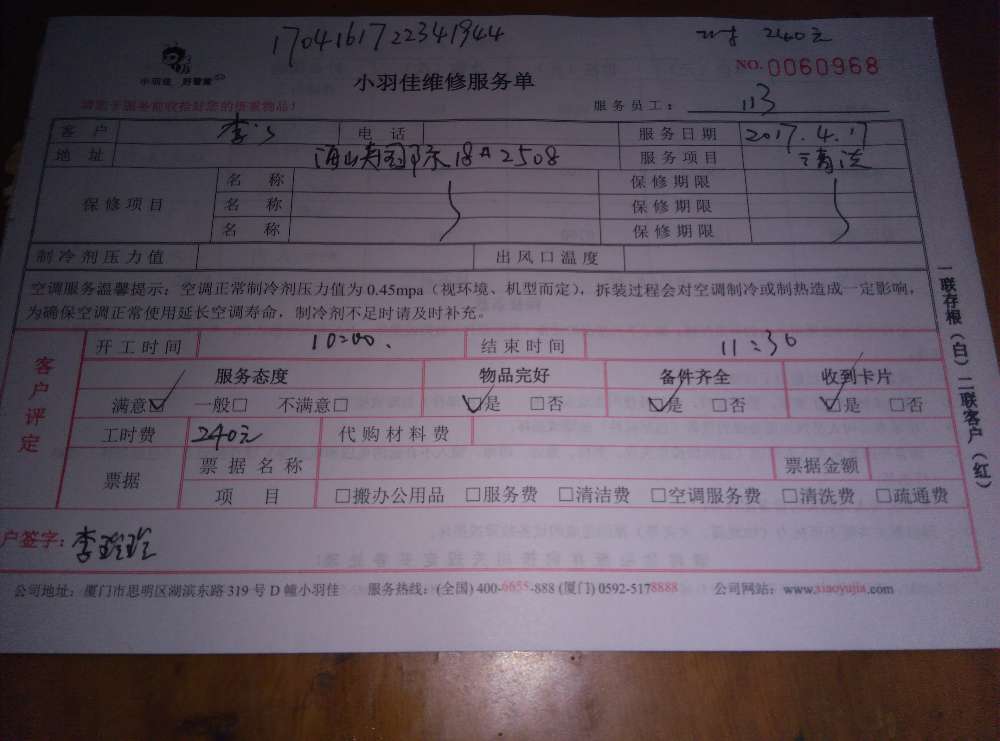 1704161722341944
240元
小羽佳 好管家
小羽佳维修服务单
NO.0060968
服务员工: 113
客户 李 电话 服务日期 2017.4.17
地址 18 2508 服务项目 清洗
保修项目 名称 保修期限
名称 保修期限
名称 保修期限
制冷剂压力值 出风口温度
空调服务温馨提示:空调正常制冷剂压力值为0.45mpa(视环境、机型而定),拆装过程会对空调制冷或制热造成一定影响,
为确保空调正常使用延长空调寿命,制冷剂不足时请及时补充。
客户评定
开工时间 10:00. 结束时间 11:30
服务态度 物品完好 备件齐全 收到卡片
满意☑ 一般□ 不满意□ ☑是 □否 ☑是 □否 ☑是 □否
工时费 240元 代购材料费
票据 票据名称 票据金额
项目 □搬办公用品 □服务费 □清洁费 □空调服务费 □清洗费 □疏通费
户签字: 李玲玲
公司地址:厦门市思明区湖滨东路319号D幢小羽佳 服务热线:(全国)400-6655-888(厦门)0592-5178888 公司网站:www.xiaoyujia.com
一联存根(白)二联客户(红)